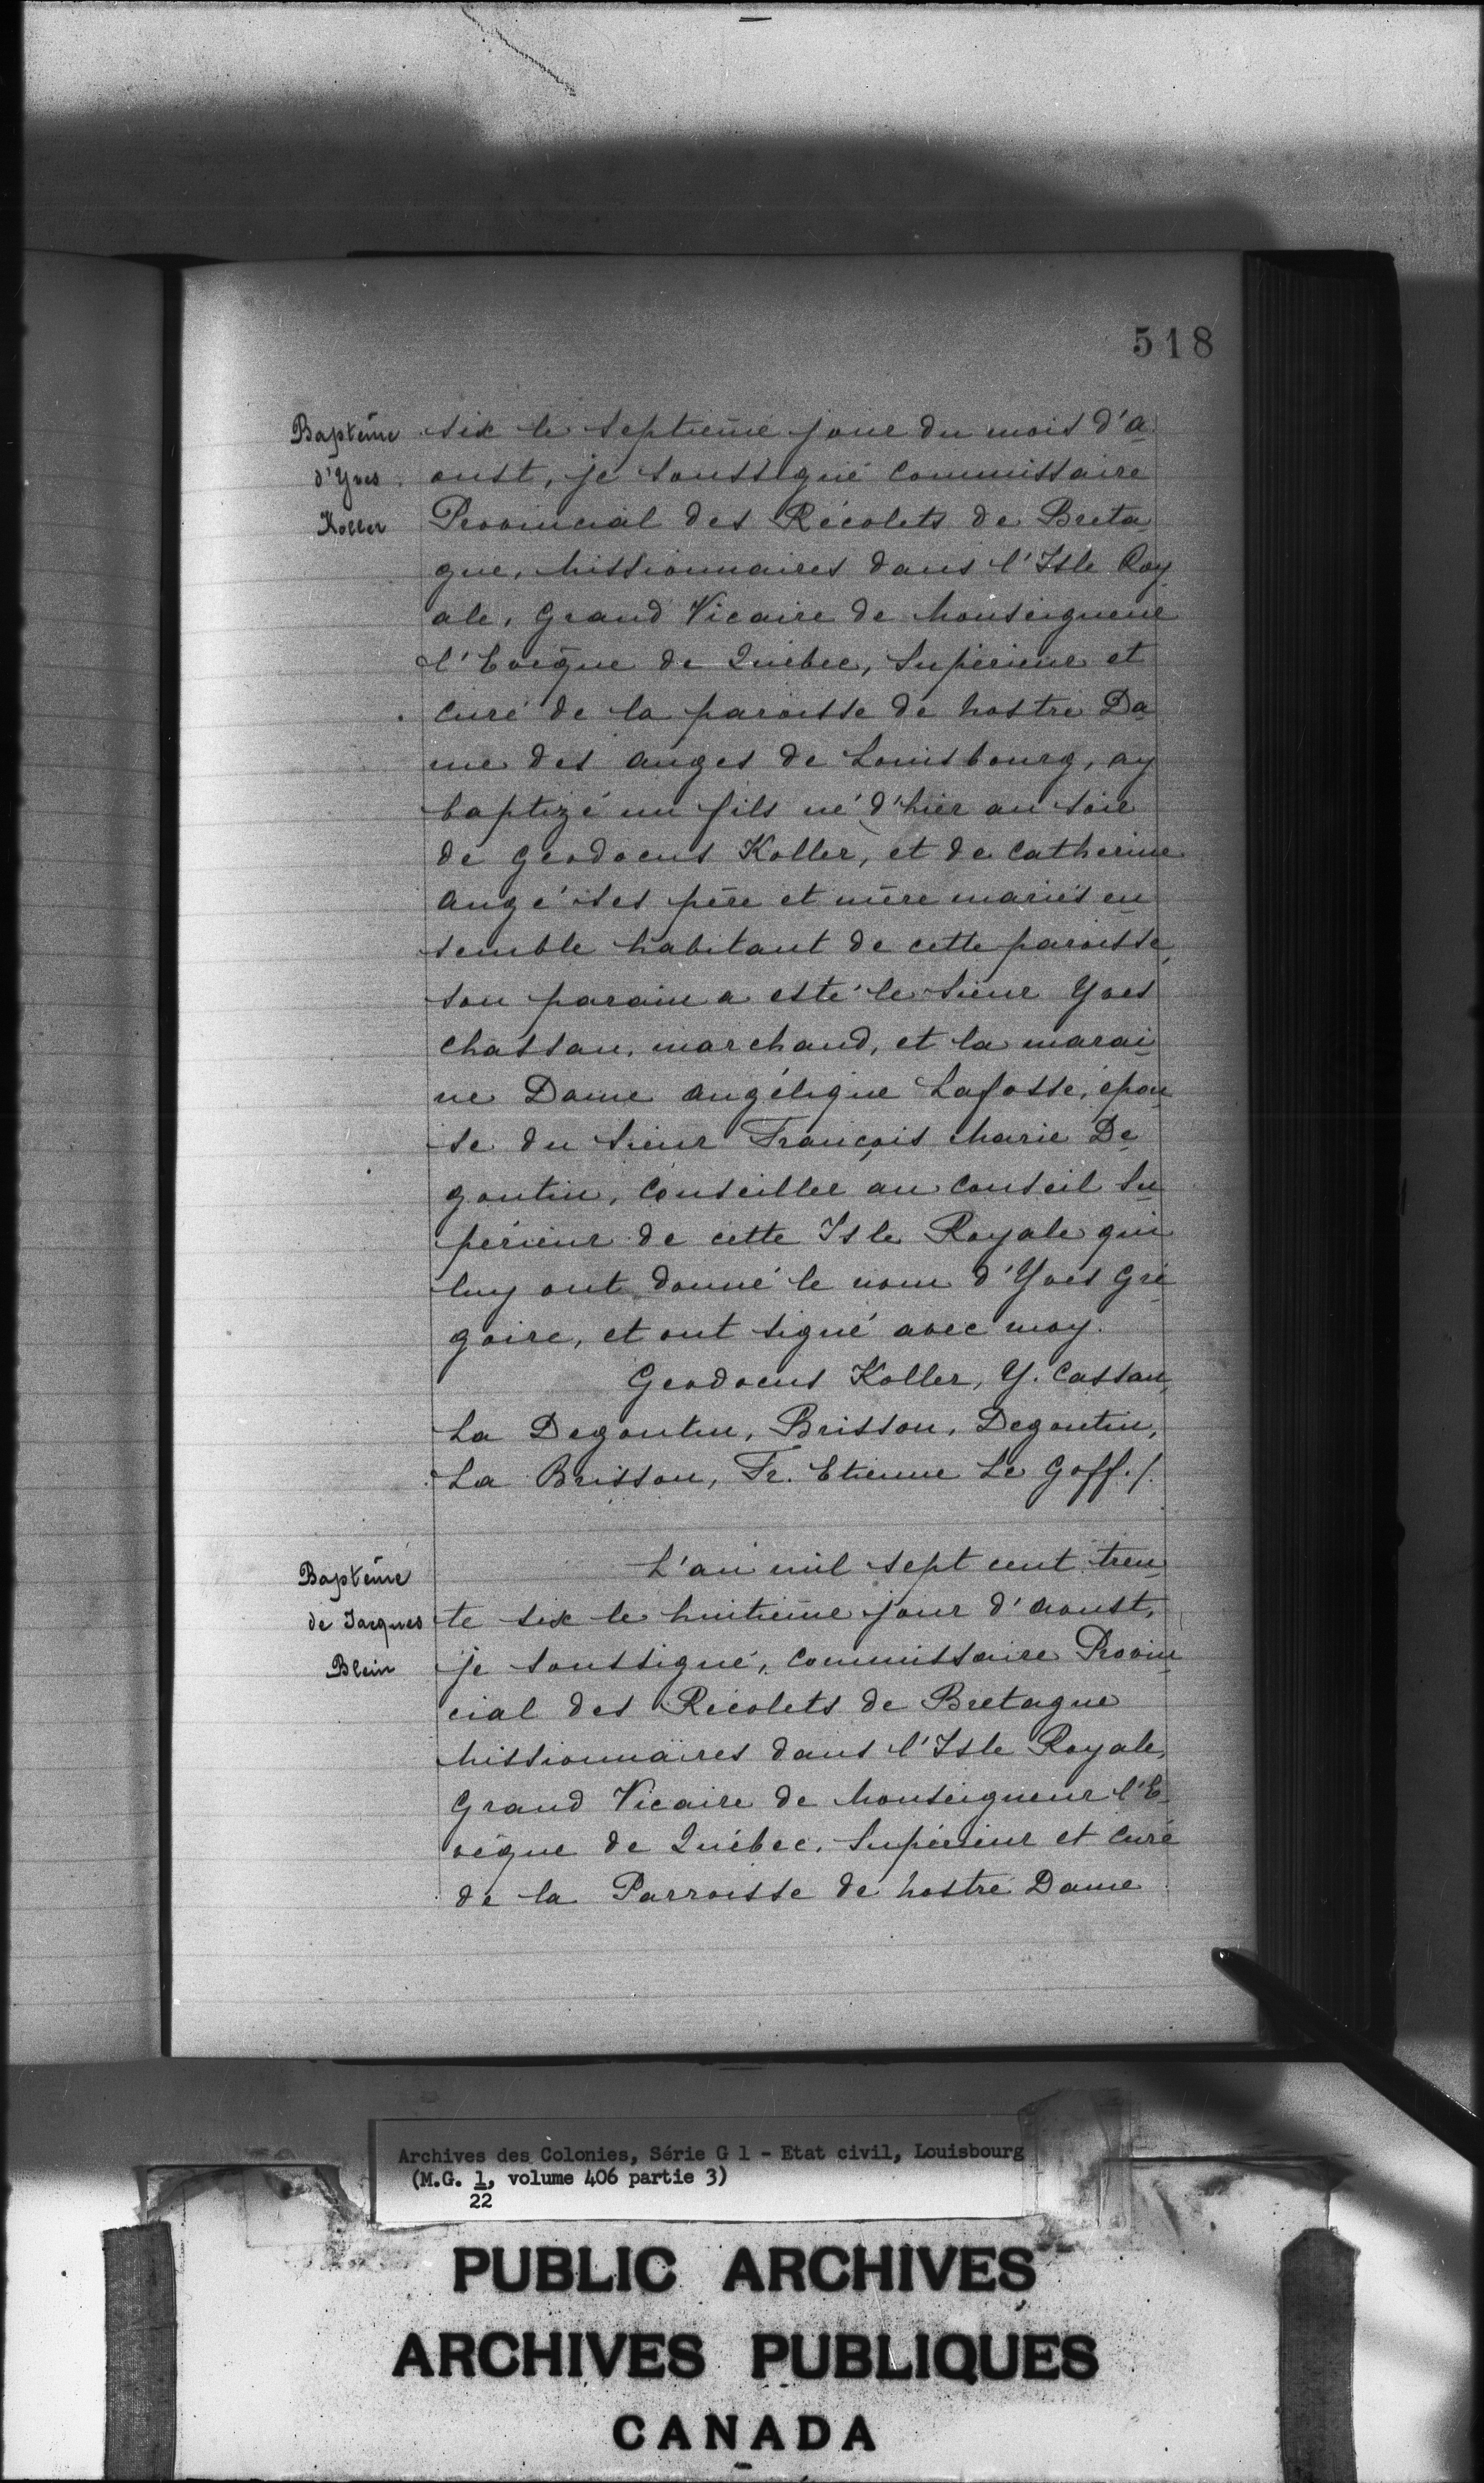 518
Baptême
d'Yves
Koller
six le septième jour du mois d'a-
oust, je soussigné Commissaire
Provincial des Récolets de Breta-
gne, Missionnaires dans l'Isle Roy-
ale, Grand Vicaire de Monseigneur
l'Evêque de Québec, Supérieur et
Curé de la paroisse de Nostre Da-
me des anges de Louisbourg, ay
baptizé un fils né d'hier au soir
de Geodocus Koller, et de Catherine
Angé ses père et mère mariés en-
semble habitant de cette paroisse,
son parain a esté le Sieur Yves
Chassan, marchand, et la marai-
ne Dame Angélique Lafosse, épou-
se du Sieur François Marie De-
goutin, Conseiller au Conseil Su-
périeur de cette Isle Royale qui
luy ont donné le nom d'Yves Gré-
goire, et ont signé avec moy.
Geodocus Koller, Y. Cassan,
La Degoutin, Brisson, Degoutin,
La Brisson, Fr. Etienne Le Goff./.
Baptême
de Jacques
Blein
L'an mil sept cent tren-
te six le huitième jour d'Aoust,
je soussigné, Commissaire Provin-
cial des Récolets de Bretagne
Missionnaires dans l'Isle Royale,
Grand Vicaire de Monseigneur l'E-
vêque de Québec, Supérieur et Curé
de la Parroisse de Nostre Dame
Archives des Colonies, Série G 1 - Etat civil, Louisbourg
(M.G. 1, volume 406 partie 3)
22
PUBLIC ARCHIVES
ARCHIVES PUBLIQUES
CANADA